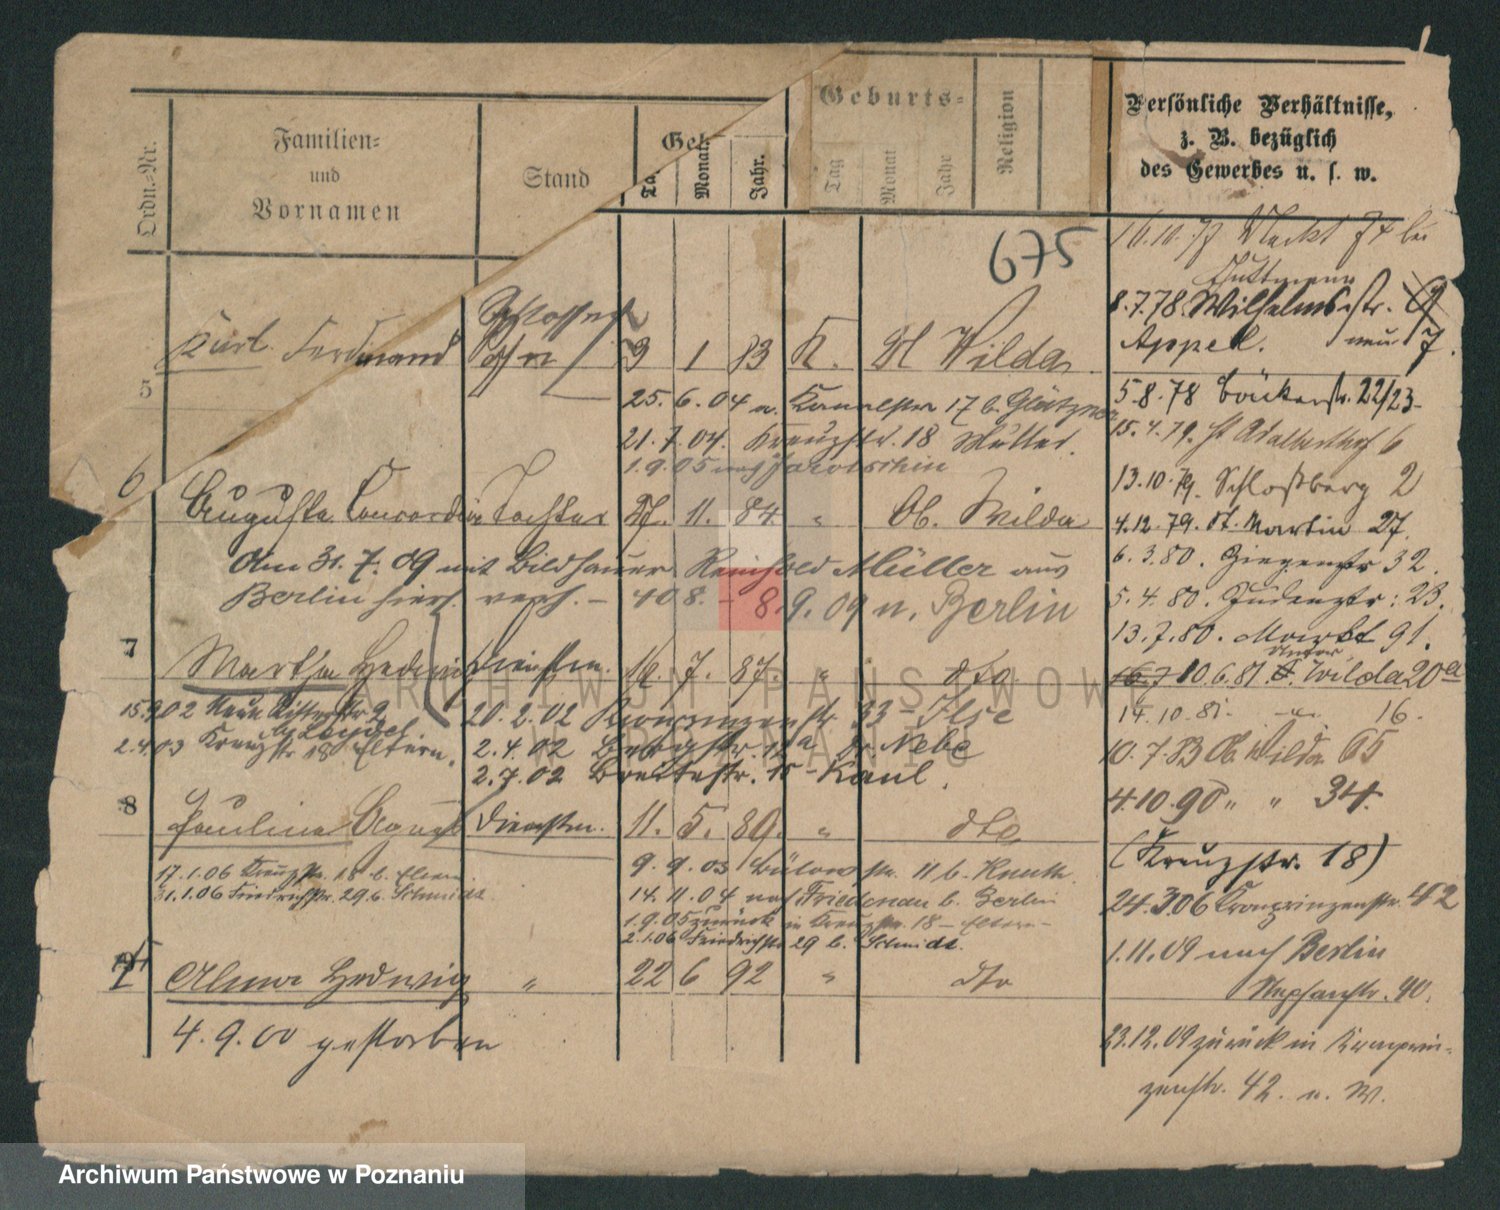 Ordn.-Nr.
Familien-
und
Vornamen
Stand
Geb.
Monat.
Jahr.
Geburts-
Tag
Monat
Jahr
Religion
Persönliche Verhältnisse,
z. B. bezüglich
des Gewerbes u. s. w.
675
5 Karl Ferdinand Schlosser
Sohn 3 1 83 K. Wilda
25. 6. 04 n. 17 b.
21. 7. 04. Kreuzstr. 18 Mutter.
1.9.05 nach Jarotschin
6 Auguste Concordia Tochter 27. 11. 84 " Ob. Wilda
Am 31. 7. 09 mit Bildhauer Reinhold Müller aus
Berlin hier verh. – 408. – 8. 9. 09 n. Berlin
7 Martha Hedwig Dienstm. 16. 7. 87. " dto
15.9.02 Neue Ritterstr 9
2.4.03 Kreuzstr 18 Eltern.
20. 2. 02 Kronprinzenstr. 33 – Ilse
2. 4. 02 Bergstr. 12a Dr. Nebe
2. 7. 02 Breitestr. 15 – Kaul.
8 Paulina Agnes Dienstm. 11. 5. 89. " dto
17.1.06 Kreuzstr. 18 b. Eltern
31.1.06 Friedrichstr. 29 b. Schmidt
9. 9. 03 Bülowstr. 11 b.
14. 11. 04 nach Friedenau b. Berlin
1.9.05 zurück in Kreuzstr. 18 – Eltern –
2.1.06 Friedrichstr 29 b. Schmidt.
Alma Hedwig " 22 6 92 " dto
4. 9. 00 gestorben
16.10.77 Markt 74 bei
8.7.78. Wilhelmstr. 9
Appel. neu 7.
5.8.78 Bäckerstr. 22/23
15.4.79. St Adalbertstr 6
13.10.79. Schloßberg 2
4.12.79. St. Martin 27.
6.3.80. Ziegenstr 32.
5.4.80. Judenstr: 23.
13.7.80. Markt 91.
Unter
10.6.81. Wilda 20a
14.10.81. 16.
10.7.83 Ob. Wilda 65
4.10.90 " " 34.
(Kreuzstr. 18)
24.3.06 Kronprinzenstr. 42
1.11.09 nach Berlin
Stephanstr. 40.
23.12.09 zurück in Kronprin-
zenstr. 42. n. W.
ARCHIWUM PAŃSTWOWE
W POZNANIU
Archiwum Państwowe w Poznaniu